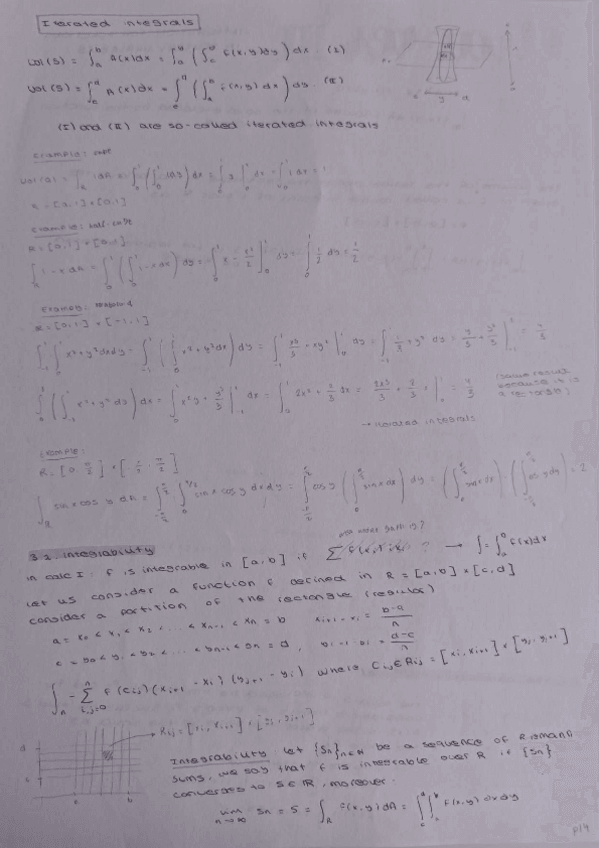 Iterated integrals
Vol(S) = ∫ₐᵇ A(x)dx = ∫ₐᵇ (∫ f(x,y)dy) dx (I)
Vol(S) = ∫ A(x)dx = ∫ (∫ₐᵇ f(x,y)dx) dy (II)
(I) and (II) are so-called iterated integrals
Example: cube
R = [0,1] × [0,1]
Example: half cube
R = [0,1] × [0,1]
∫ 1-x dA = ∫₀¹ (∫₀¹ 1-x dx) dy = ∫₀¹ x - x²/2 |₀¹ dy = ∫₀¹ 1/2 dy = 1/2
Example:
R = [0,1] × [-1,1]
∫₋₁¹ ∫₀¹ x²+y² dxdy = ∫₋₁¹ (∫₀¹ x²+y² dx) dy = ∫₋₁¹ x³/3 + xy² |₀¹ dy = ∫₋₁¹ 1/3 + y² dy = y/3 + y³/3 |₋₁¹ = 4/3
∫₀¹ (∫₋₁¹ x²+y² dy) dx = ∫₀¹ x²y + y³/3 |₋₁¹ dx = ∫₀¹ 2x² + 2/3 dx = 2x³/3 + 2/3 x |₀¹ = 4/3
(same result because it is a rectangle)
→ iterated integrals
Example:
R = [0, π/2] × [-π/2, π/2]
∫_R sin x cos y dA = ∫ ∫ sin x cos y dxdy = ∫ cos y (∫ sin x dx) dy = (∫ sin x dx) · (∫ cos y dy) = 2
3.2. Integrability
In calc I. f is integrable in [a,b] if Σ f(xᵢ) → ∫ = ∫ₐᵇ f(x)dx
Let us consider a function f defined in R = [a,b] × [c,d]
consider a partition of the rectangle (regular)
a = x₀ < x₁ < x₂ < ... < xₙ₋₁ < xₙ = b xᵢ₊₁ - xᵢ = b-a/n
c = y₀ < y₁ < y₂ < ... < yₙ₋₁ < yₙ = d, = d-c/n
Σ f(cᵢⱼ)(xᵢ₊₁ - xᵢ)(yⱼ₊₁ - yⱼ) where cᵢⱼ ∈ Rᵢⱼ = [xᵢ, xᵢ₊₁] × [yⱼ, yⱼ₊₁]
Rᵢⱼ = [xᵢ, xᵢ₊₁] × [yⱼ, yⱼ₊₁]
Integrability Let {Sₙ}ₙ∈ℕ be a sequence of Riemann
sums, we say that f is integrable over R if {Sₙ}
converges to S ∈ ℝ, moreover.
lim n→∞ Sₙ = S = ∫_R f(x,y)dA = ∫ ∫ f(x,y) dxdy